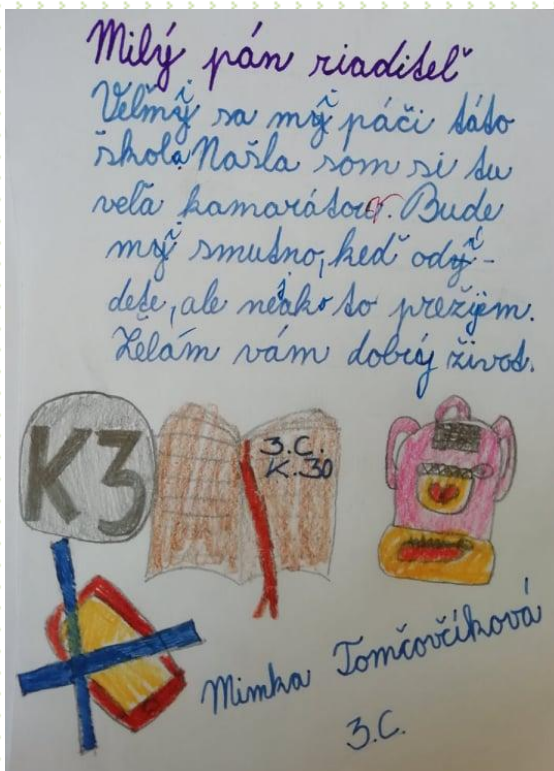 Milý pán riaditeľ
Veľmi sa mi páči táto
škola. Našla som si tu
veľa kamarátov. Bude
mi smutno, keď odí-
dete, ale nejako to prežijem.
Želám vám dobrý život.
K3
3.C.
K.30
Mimka Tomčovčíková
3.C.